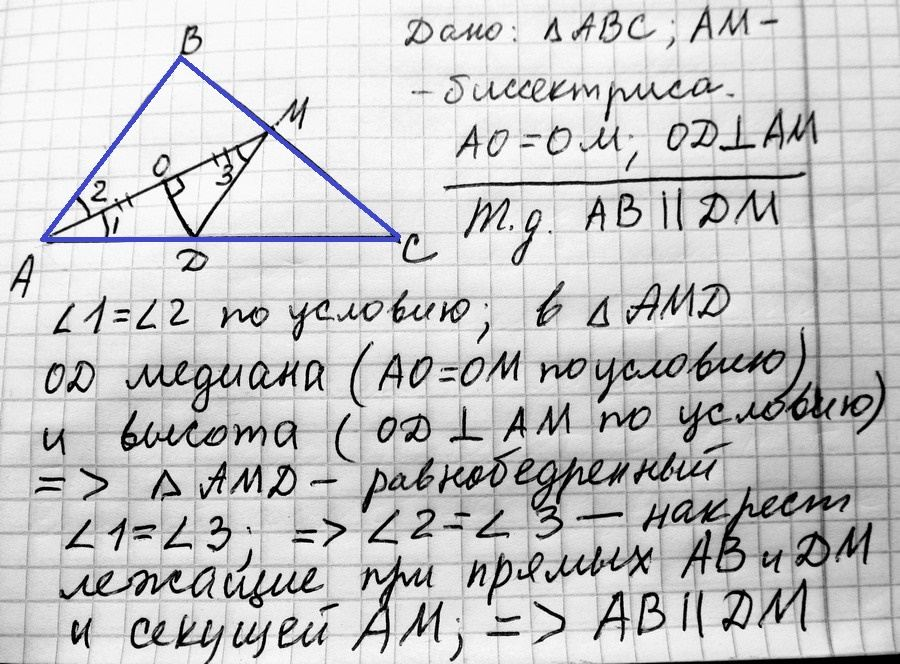 B
M
O
2
3
1
A
D
C
Дано: △ABC; AM –
– биссектриса.
AO = OM; OD ⊥ AM
Т.д. AB || DM
∠1 = ∠2 по условию; в △ AMD
OD медиана (AO = OM по условию)
и высота ( OD ⊥ AM по условию)
=> △ AMD – равнобедренный
∠1 = ∠3; => ∠2 = ∠3 — накрест
лежащие при прямых AB и DM
и секущей AM; => AB || DM